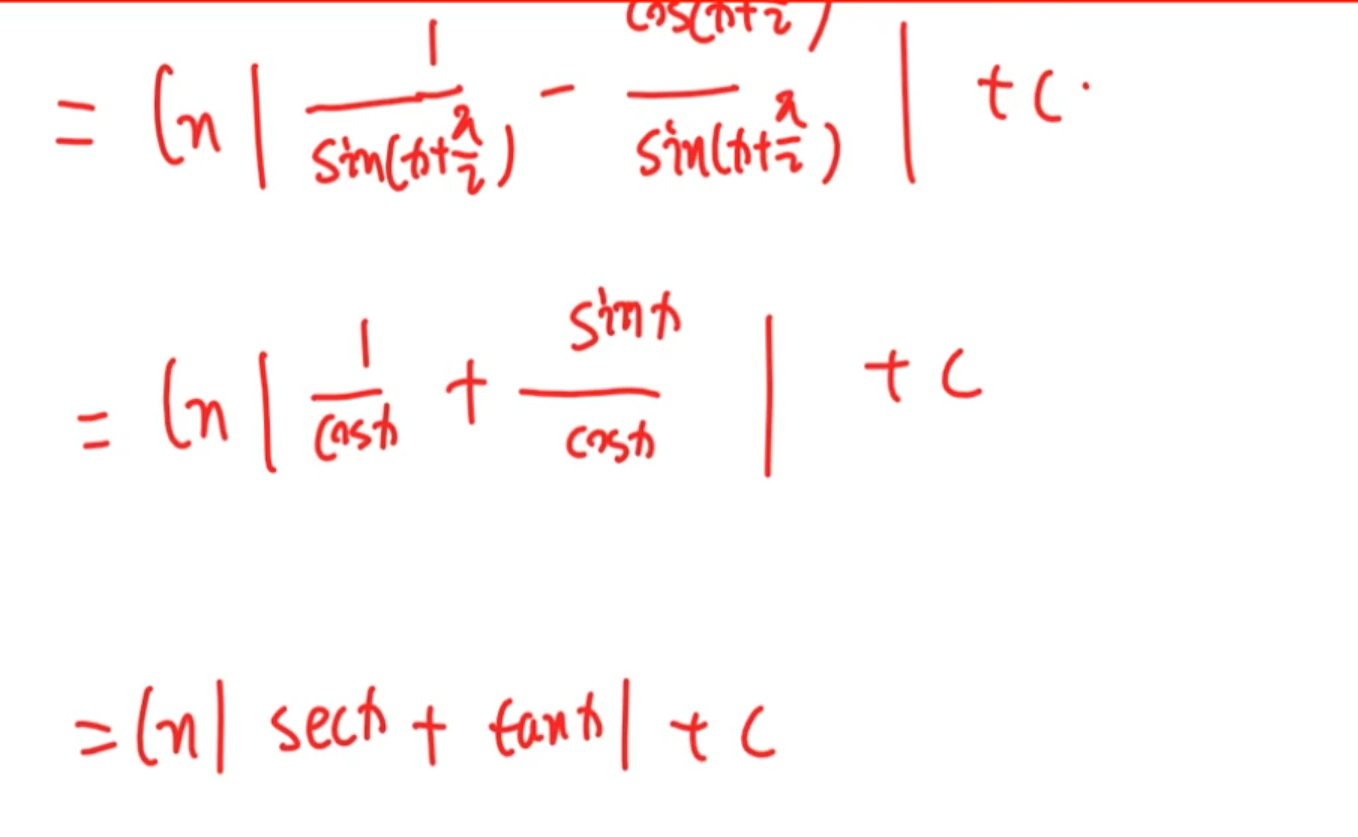 = ln | 1/sin(x+π/2) - cos(x+π/2)/sin(x+π/2) | + c.
= ln | 1/cosx + sinx/cosx | + c
= ln | secx + tanx | + c